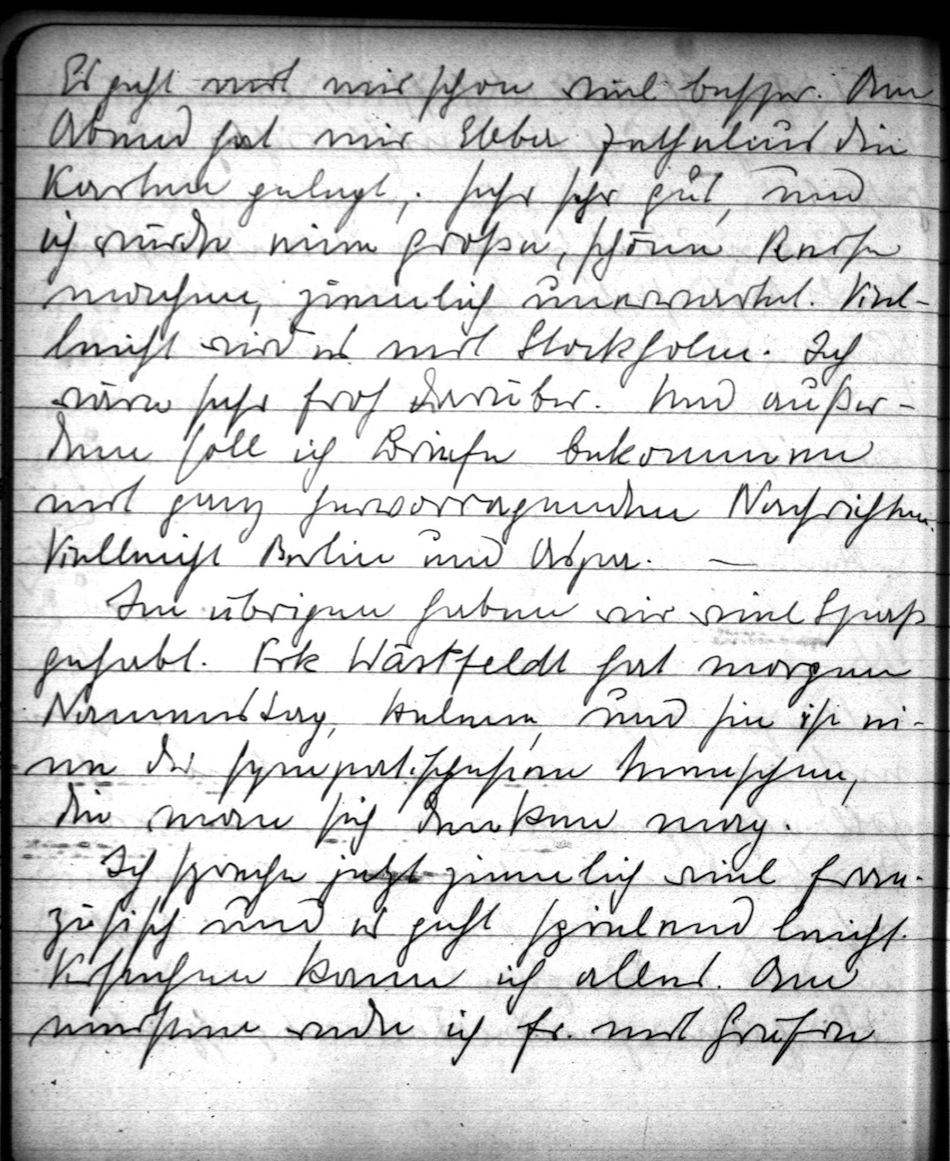 Es geht mit mir schon viel besser. Am
Abend hat mir Ebba die
Karten gelegt,. sehr sehr gut, und
ich würde eine große, schöne Reise
machen, ziemlich unerwartet. Viel-
leicht wird es mit Stockholm. Ich
wäre sehr froh darüber. Und außer-
dem soll ich Briefe bekommen
mit ganz hervorragenden Nachrichten.
Vielleicht Berlin und Asper. —
Im übrigen haben wir viel Spaß
gehabt. Frk Wästfeldt hat morgen
Namenstag, Helena, und sie ist ei-
ne der sympatischesten Menschen,
die man sich denken mag.
Ich spreche jetzt ziemlich viel fran-
zösisch und es geht spielend leicht.
Verstehen kann ich alles. Am
meisten rede ich fr. mit Gräfin